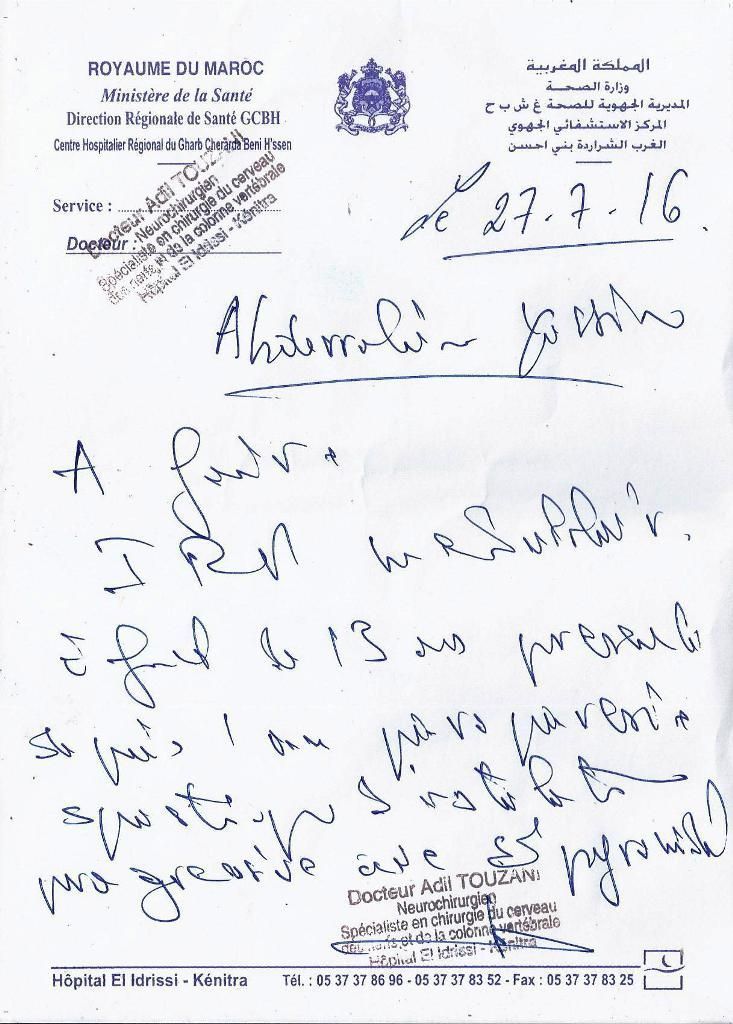 ROYAUME DU MAROC
Ministère de la Santé
Direction Régionale de Santé GCBH
Centre Hospitalier Régional du Gharb Cherarda Beni H'ssen
المملكة المغربية
وزارة الصحة
المديرية الجهوية للصحة غ ش ب ح
المركز الاستشفائي الجهوي
الغرب الشراردة بني احسن
Service :
Docteur :
Docteur Adil TOUZANI
Neurochirurgien
Spécialiste en chirurgie du cerveau
des nerfs et de la colonne vertébrale
Hôpital El Idrissi - Kénitra
le 27-7-16.
A faire
médullaire.
de 13 ans présente
depuis 1 an paraparésie
spastique d'installation
progressive avec sd pyramidal
Docteur Adil TOUZANI
Neurochirurgien
Spécialiste en chirurgie du cerveau
des nerfs et de la colonne vertébrale
Hôpital El Idrissi - Kénitra
Hôpital El Idrissi - Kénitra Tél. : 05 37 37 86 96 - 05 37 37 83 52 - Fax : 05 37 37 83 25